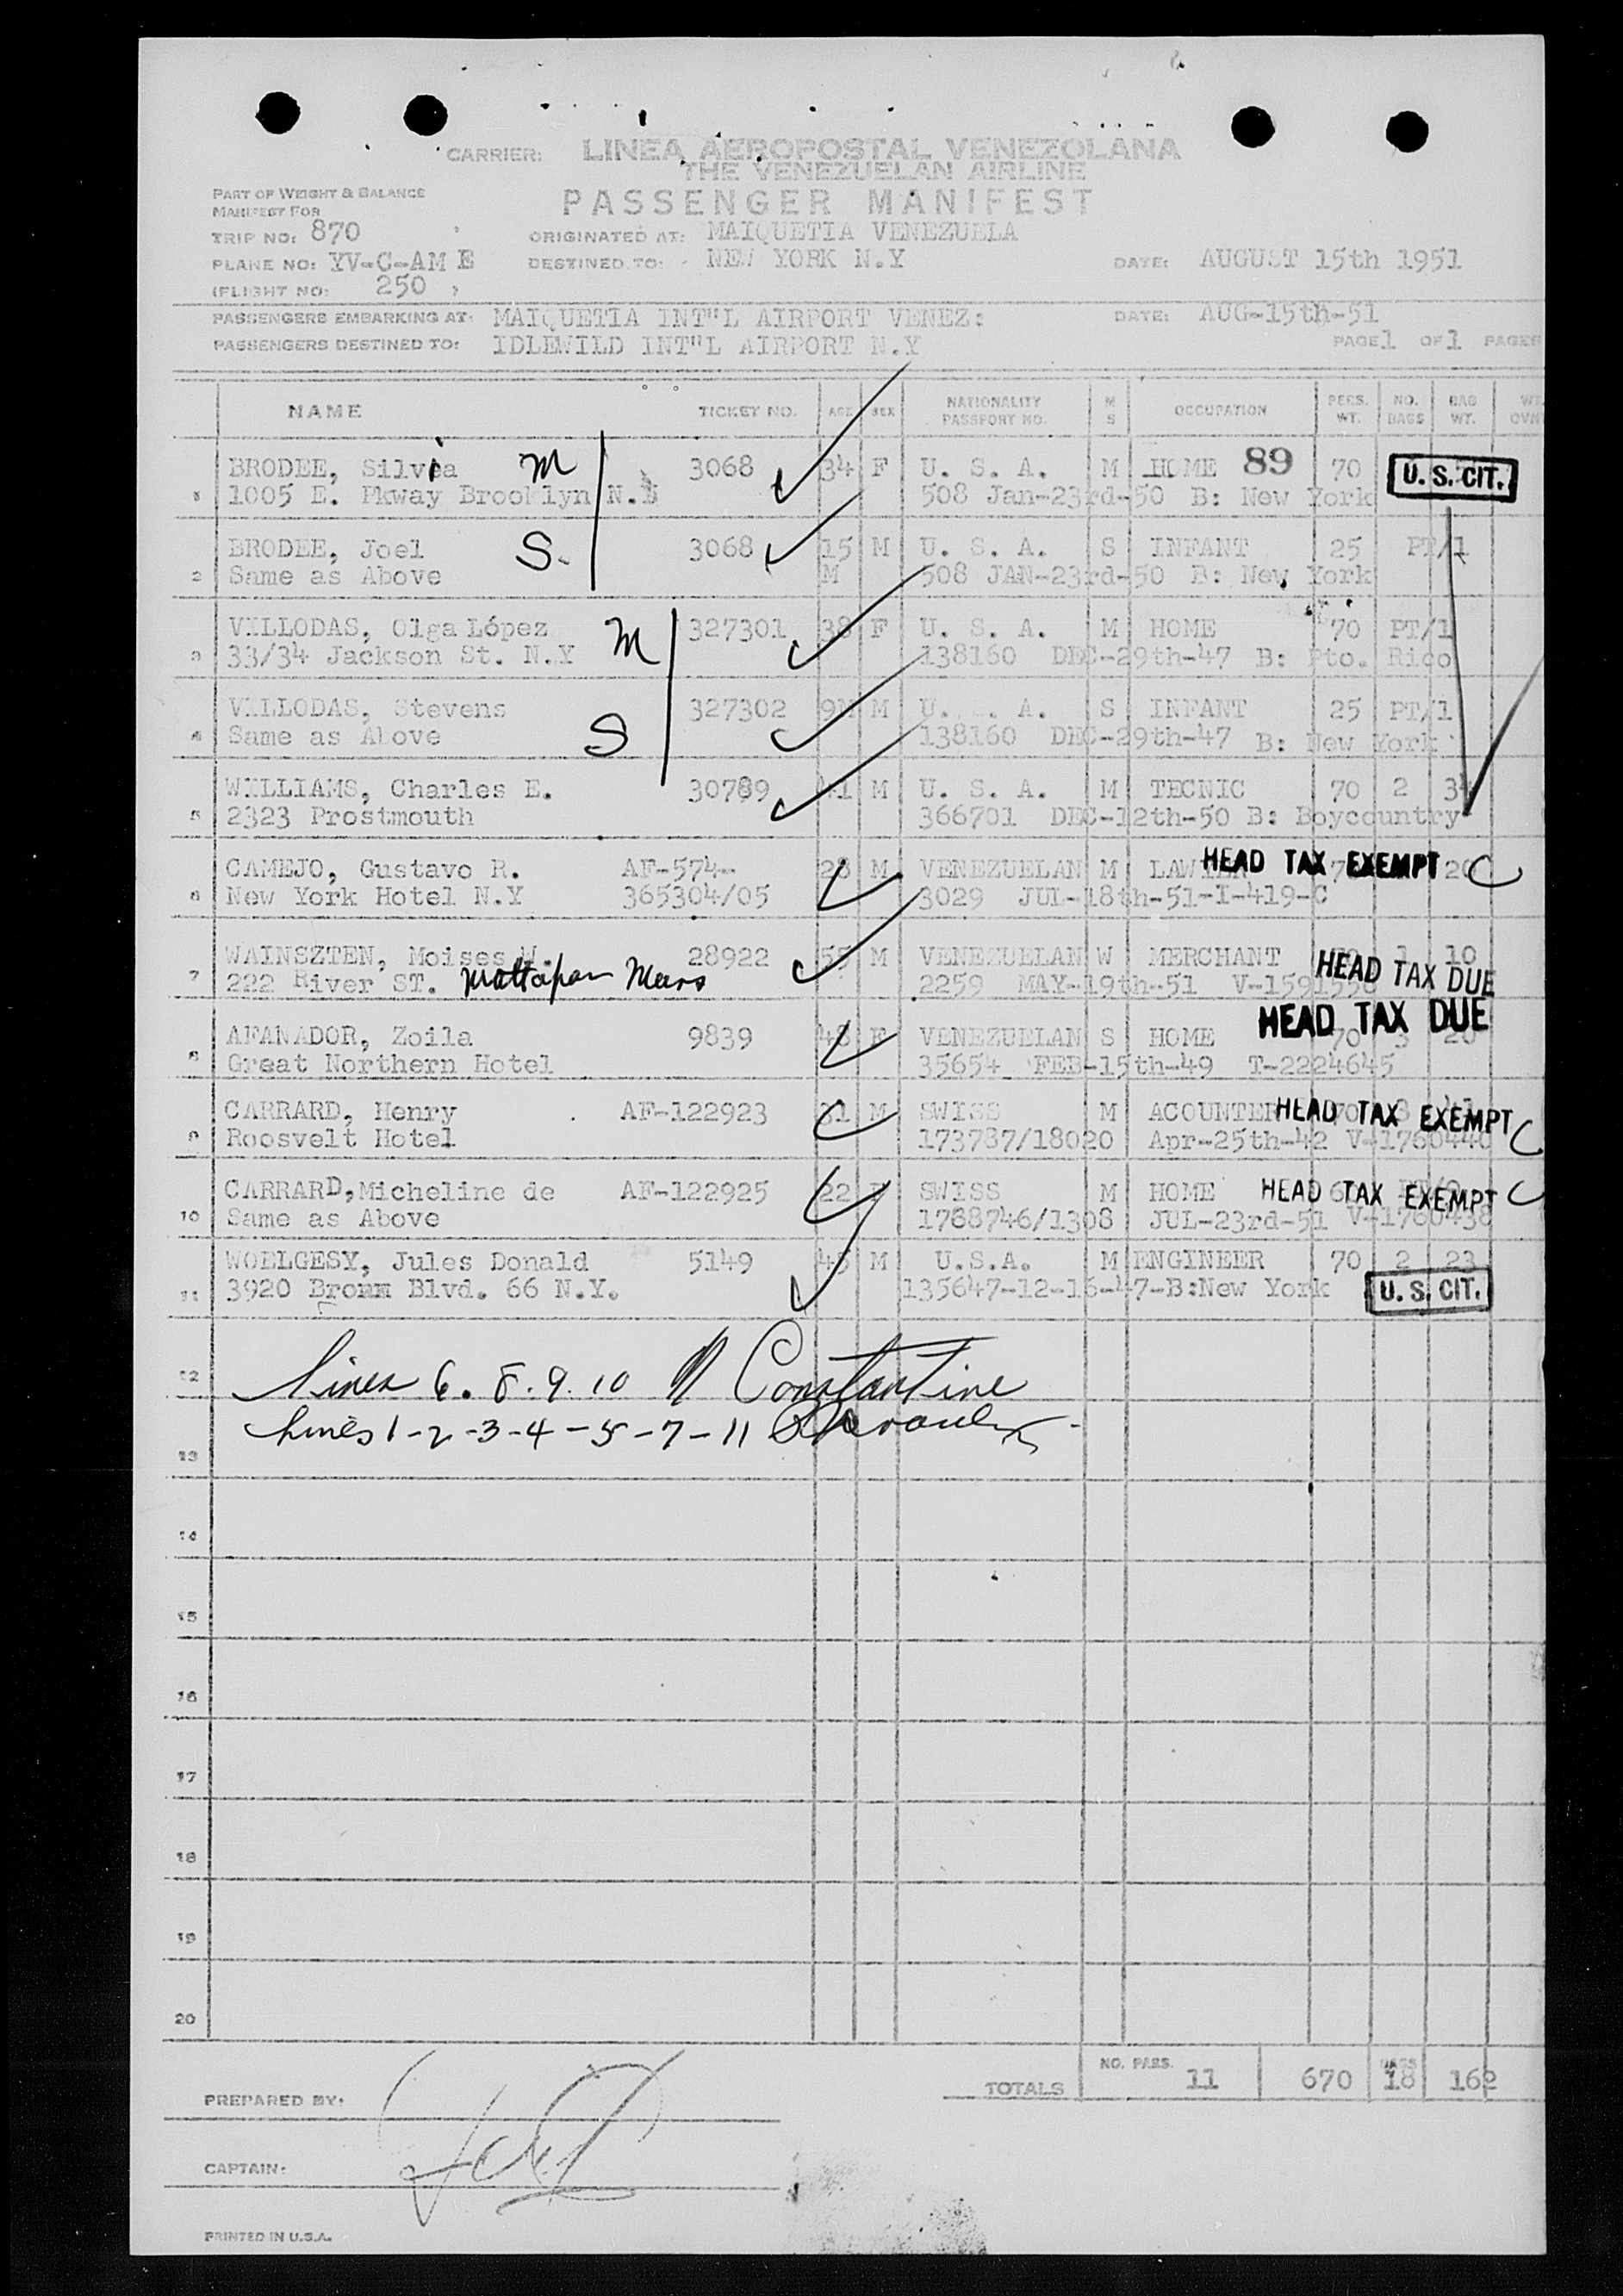 CARRIER: LINEA AEROPOSTAL VENEZOLANA
THE VENEZUELAN AIRLINE
PASSENGER MANIFEST
PART OF WEIGHT & BALANCE
MANIFEST FOR
TRIP NO: 870 ORIGINATED AT: MAIQUETIA VENEZUELA
PLANE NO: YV-C-AM E DESTINED TO: NEW YORK N.Y DATE: AUGUST 15th 1951
(FLIGHT NO: 250
PASSENGERS EMBARKING AT: MAIQUETIA INT"L AIRPORT VENEZ: DATE: AUG-15th-51
PASSENGERS DESTINED TO: IDLEWILD INT"L AIRPORT N.Y PAGE 1 OF 1 PAGES
NAME TICKET NO. AGE SEX NATIONALITY PASSPORT NO. M S OCCUPATION PERS. WT. NO. BAGS BAG WT.
BRODEE, Silvia M 3068 34 F U. S. A. M HOME 89 70 U. S. CIT.
1005 E. Pkway Brooklyn N.Y 508 Jan-23rd-50 B: New York
BRODEE, Joel S. 3068 15 M U. S. A. S INFANT 25 PT/1
2 Same as Above M 508 JAN-23rd-50 B: New York
VILLODAS, Olga López M 327301 38 F U. S. A. M HOME 70 PT/1
3 33/34 Jackson St. N.Y 138160 DEC-29th-47 B: Pto. Rico
VILLODAS, Stevens S 327302 9M M U. S. A. S INFANT 25 PT/1
4 Same as Above 138160 DEC-29th-47 B: New York
WILLIAMS, Charles E. 30789 41 M U. S. A. M TECNIC 70 2 34
5 2323 Prostmouth 366701 DEC-12th-50 B: Boycountry
CAMEJO, Gustavo R. AF-574- 28 M VENEZUELAN M HEAD TAX EXEMPT 20 C
6 New York Hotel N.Y 365304/05 3029 JUL-18th-51-I-419-C
WAINSZTEN, Moises W. 28922 55 M VENEZUELAN W MERCHANT 1 10
7 222 River ST. Mattapan Mass 2259 MAY-19th-51 V-1591558 HEAD TAX DUE
AFANADOR, Zoila 9839 48 F VENEZUELAN S HOME 70 3 20 HEAD TAX DUE
8 Great Northern Hotel 35654 FEB-15th-49 T-2224645
CARRARD, Henry AF-122923 31 M SWISS M ACOUNTER 70 HEAD TAX EXEMPT C
9 Roosvelt Hotel 173787/18020 Apr-25th-42 V-1760440
CARRARD, Micheline de AF-122925 22 F SWISS M HOME HEAD TAX EXEMPT C
10 Same as Above 1788746/1308 JUL-23rd-51 V-1760438
WOELGESY, Jules Donald 5149 45 M U.S.A. M ENGINEER 70 2 23
11 3920 Bronx Blvd. 66 N.Y. 135647-12-16-47-B:New York U. S. CIT.
12 Lines 6. 8. 9. 10 Constantine
Lines 1-2-3-4-5-7-11
13
14
15
16
17
18
19
20
TOTALS NO. PASS. 11 670 BAGS 18 162
PREPARED BY:
CAPTAIN:
PRINTED IN U.S.A.